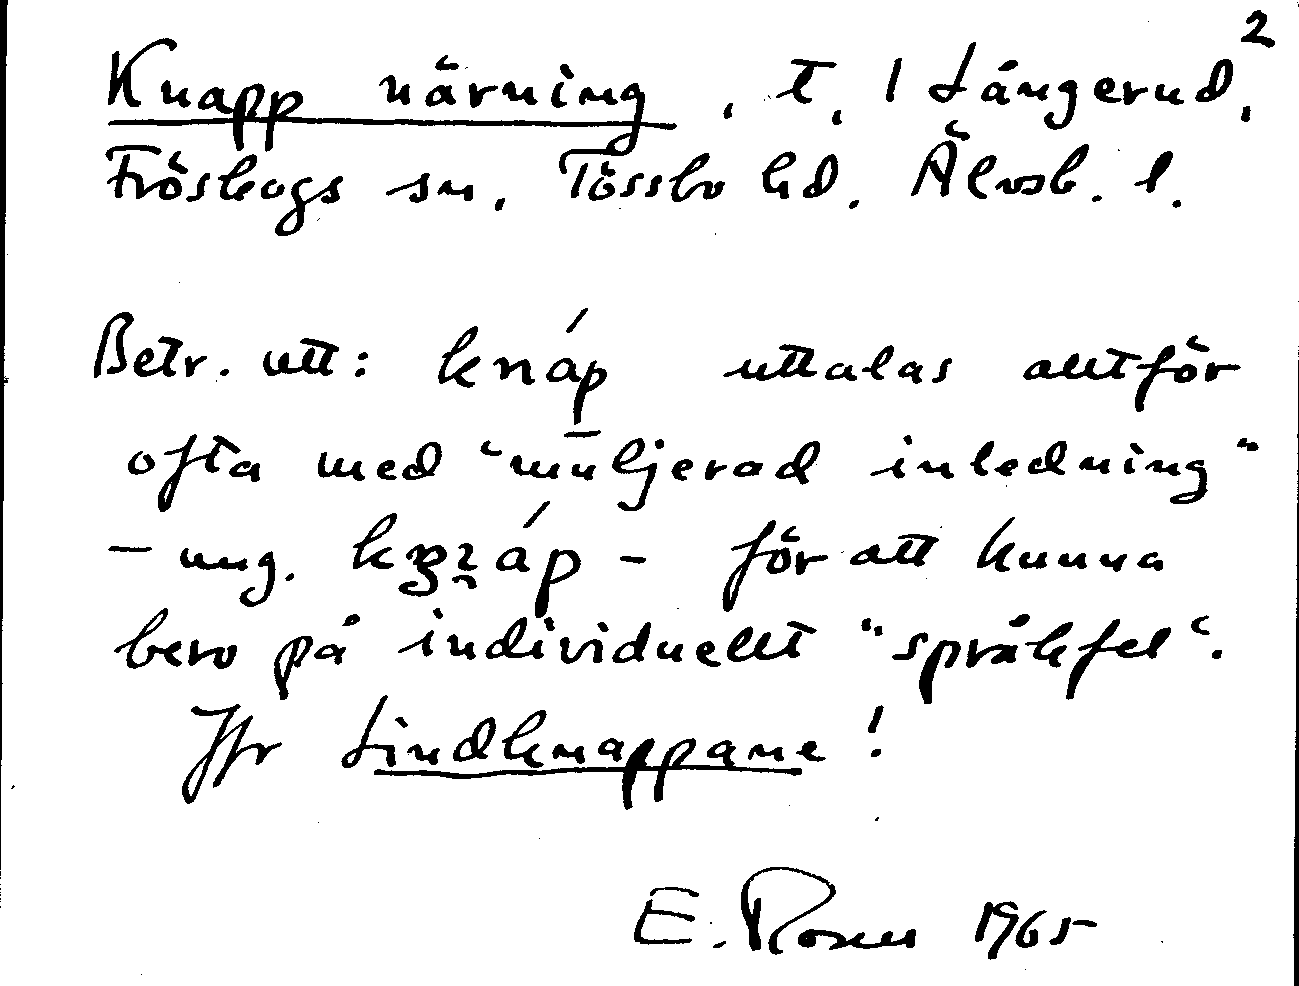 2
Knapp närning, t. 1 Långerud,
Fröskogs sn, Tössbo hd. Älvsb. l.
Betr. utt: knáp uttalas alltför
ofta med "mūljerad inledning"
– ung. káp – för att kunna
bero på individuellt "språkfel".
Jfr Lindknappane!
E. Rosen 1965